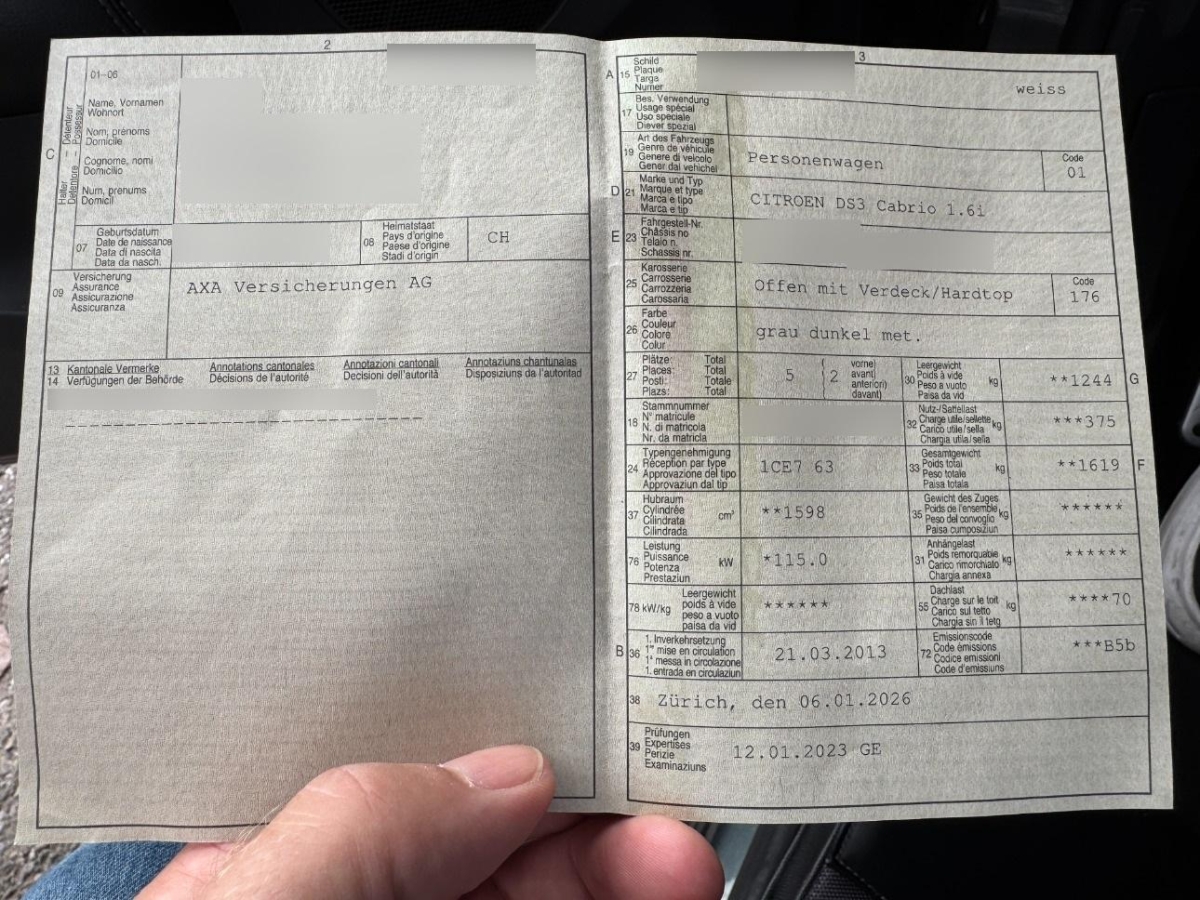 2
01-06
C
Halter – Détenteur
Detentore – Possessur
Name, Vornamen
Wohnort
Nom, prénoms
Domicile
Cognome, nomi
Domicilio
Num, prenums
Domicil
07
Geburtsdatum
Date de naissance
Data di nascita
Data da nasch.
08
Heimatstaat
Pays d'origine
Paese d'origine
Stadi d'origin
CH
09
Versicherung
Assurance
Assicurazione
Assicuranza
AXA Versicherungen AG
13 Kantonale Vermerke Annotations cantonales Annotazioni cantonali Annotaziuns chantunalas
14 Verfügungen der Behörde Décisions de l'autorité Decisioni dell'autorità Disposiziuns da l'autoritad
3
A 15
Schild
Plaque
Targa
Numer
weiss
17
Bes. Verwendung
Usage spécial
Uso speciale
Diever spezial
19
Art des Fahrzeugs
Genre de véhicule
Genere di veicolo
Gener dal vehichel
Personenwagen
Code
01
D 21
Marke und Typ
Marque et type
Marca e tipo
Marca e tip
CITROEN DS3 Cabrio 1.6i
E 23
Fahrgestell-Nr.
Châssis no
Telaio n.
Schassis nr.
25
Karosserie
Carrosserie
Carrozzeria
Carossaria
Offen mit Verdeck/Hardtop
Code
176
26
Farbe
Couleur
Colore
Colur
grau dunkel met.
27
Plätze: Total
Places: Total
Posti: Totale
Plazs: Total
5
2
vorne)
avant)
anteriori)
davant)
30
Leergewicht
Poids à vide
Peso a vuoto
Paisa da vid
kg
**1244
G
18
Stammnummer
N° matricule
N. di matricola
Nr. da matricla
32
Nutz-/Sattellast
Charge utile/sellette
Carico utile/sella
Chargia utila/sella
kg
***375
24
Typengenehmigung
Réception par type
Approvazione del tipo
Approvaziun dal tip
1CE7 63
33
Gesamtgewicht
Poids total
Peso totale
Paisa totala
kg
**1619
F
37
Hubraum
Cylindrée
Cilindrata
Cilindrada
cm³
**1598
35
Gewicht des Zuges
Poids de l'ensemble
Peso del convoglio
Paisa cumposiziun
kg
******
76
Leistung
Puissance
Potenza
Prestaziun
kW
*115.0
31
Anhängelast
Poids remorquable
Carico rimorchiato
Chargia annexa
kg
******
78 kW/kg
Leergewicht
poids à vide
peso a vuoto
paisa da vid
******
55
Dachlast
Charge sur le toit
Carico sul tetto
Chargia sin il tetg
kg
****70
B 36
1. Inverkehrsetzung
1re mise en circulation
1a messa in circolazione
1. entrada en circulaziun
21.03.2013
72
Emissionscode
Code émissions
Codice emissioni
Code d'emissiuns
***B5b
38
Zürich, den 06.01.2026
39
Prüfungen
Expertises
Perizie
Examinaziuns
12.01.2023 GE